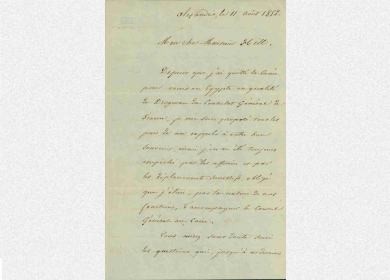 Alexandrie, le 11 août 185
Mon cher Monsieur
Depuis que j'ai quitté la
pour venir en Egypte en qualité
de Drogman du Consulat Général de
je me suis proposé tous les
jours de me rappeler à votre bon
souvenir, mais j'en ai été toujours
empêché par les affaires et par
les déplacements successifs, obligé
que j'étais, par la nature de mes
fonctions, d'accompagner le Consul
Général au Caire.
Vous aurez sans doute suivi
les questions qui, jusqu'à